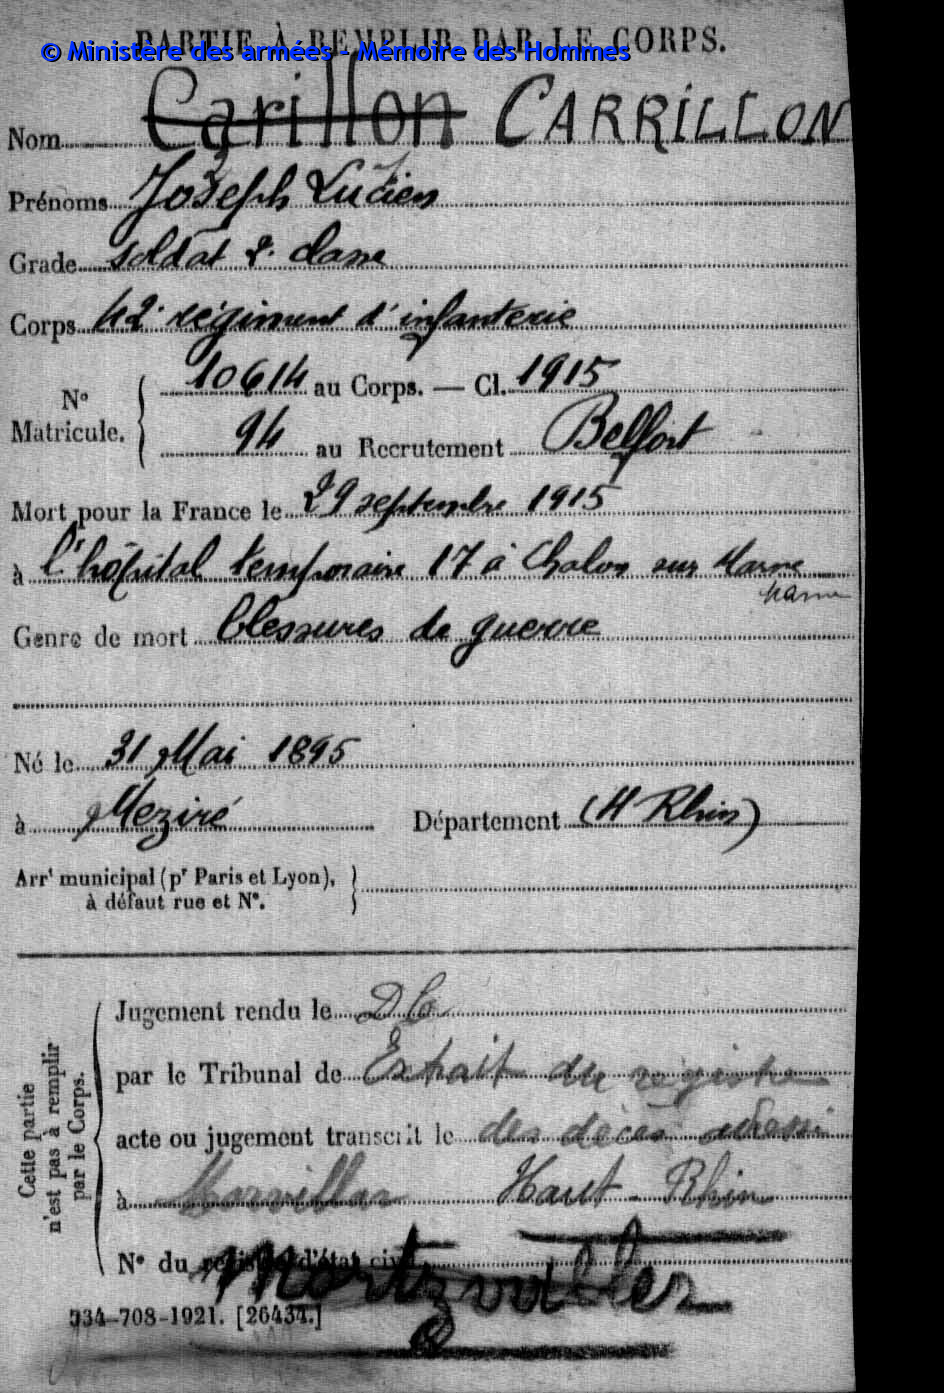 PARTIE À REMPLIR PAR LE CORPS.
© Ministère des armées - Mémoire des Hommes
Nom Carillon CARRILLON
Prénoms Joseph Lucien
Grade soldat 2e classe
Corps 42e régiment d'infanterie
No Matricule. 10614 au Corps. — Cl. 1915
94 au Recrutement Belfort
Mort pour la France le 29 septembre 1915
à l'hôpital temporaire 17 à Chalon sur Marne
Marne
Genre de mort blessures de guerre
Né le 31 Mai 1895
à Meziré Département (H Rhin)
Arrt municipal (pr Paris et Lyon),
à défaut rue et No.
Cette partie n'est pas à remplir par le Corps.
Jugement rendu le
par le Tribunal de Extrait du registre
acte ou jugement transcrit le des décès adressé
à Morvillar Haut-Rhin
No du registre d'état civil
Mortzviller
534-708-1921. [26434.]